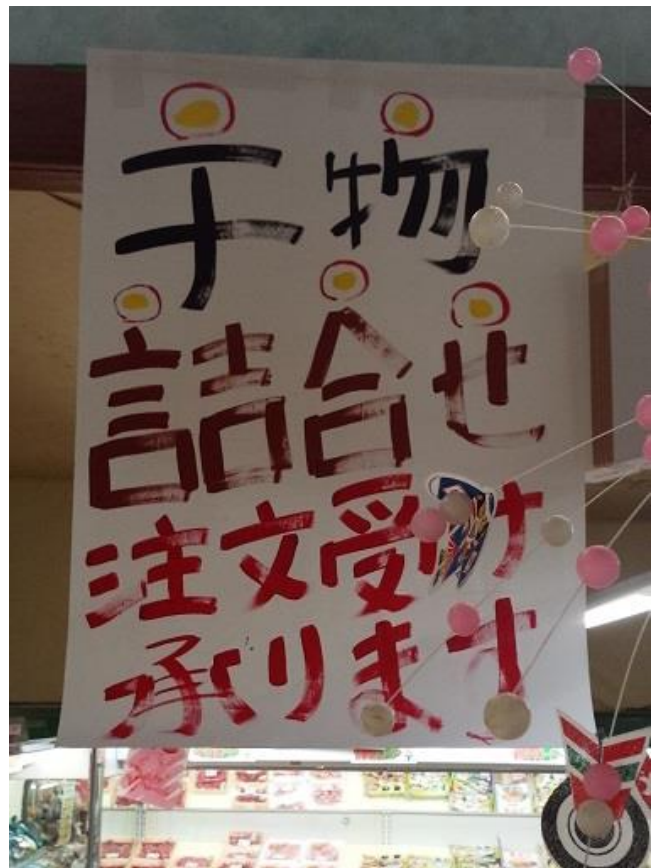 干物
詰合せ
注文受け
承ります